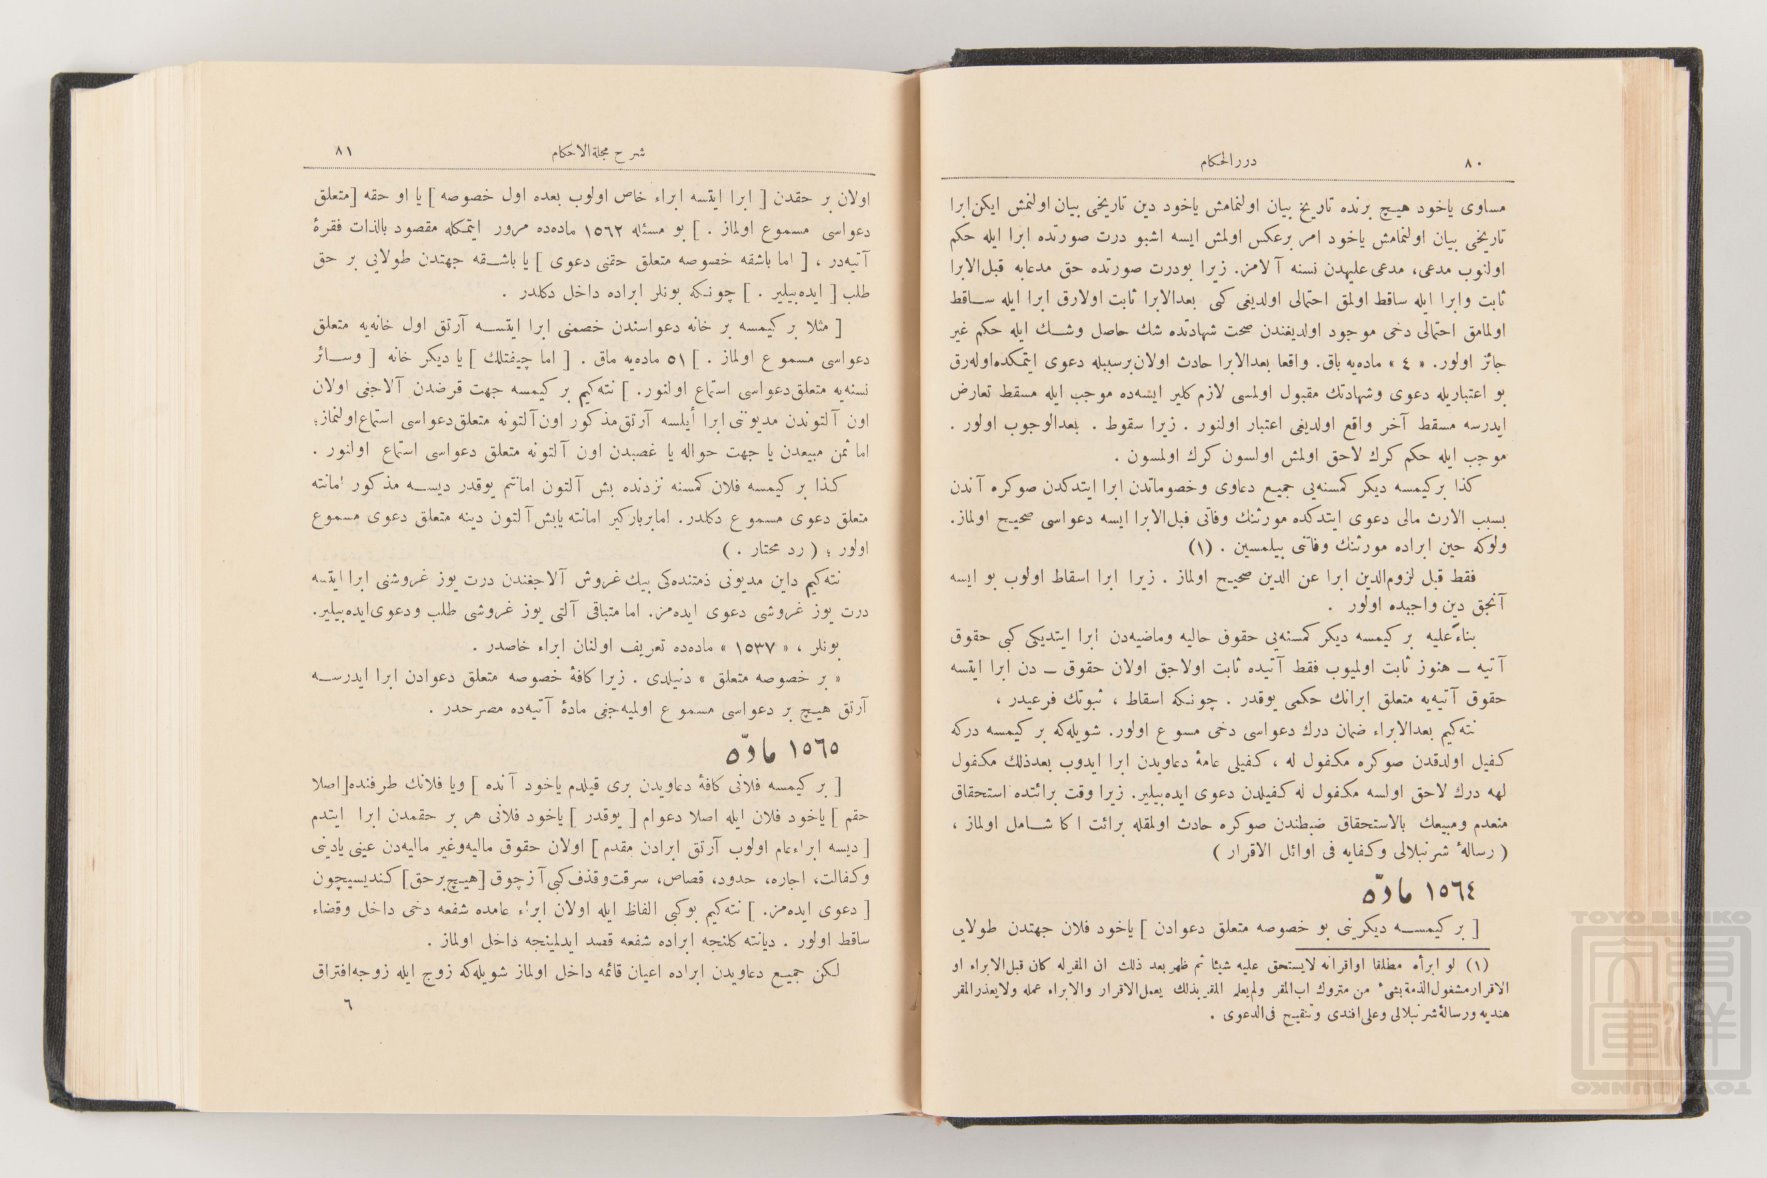 ٨٠
درر الحكام
مساوى ياخود هيچ برنده تاريخ بيان اولنمامش ياخود دين تاريخى بيان اولنمش ايكن ابرا
تاريخى بيان اولنمامش ياخود امر برعكس اولمش ايسه اشبو درت صورتده ابرا ايله حكم
اولنوب مدعى، مدعى عليهدن نسنه آلامز. زيرا بودرت صورتده حق مدعابه قبل الابرا
ثابت وابرا ايله ساقط اولمق احتمالى اولديغى كبى بعدالابرا ثابت اولارق ابرا ايله ساقط
اولمامق احتمالى دخى موجود اولديغندن صحت شهادتده شك حاصل وشك ايله حكم غير
جائز اولور. « ٤ » ماده‌يه باق. واقعا بعدالابرا حادث اولان برسببله دعوى ايتمكده اوله‌رق
بو اعتباريله دعوى وشهادتك مقبول اولمسى لازم كلير ايسه‌ده موجب ايله مسقط تعارض
ايدرسه مسقط آخر واقع اولديغى اعتبار اولنور . زيرا سقوط . بعدالوجوب اولور .
موجب ايله حكم كرك لاحق اولمش اولسون كرك اولمسون .
كذا بركيمسه ديكر كمسنه‌يى جميع دعاوى وخصوماتدن ابرا ايتدكدن صوكره آندن
بسبب الارث مالى دعوى ايتدكده مورثنك وفاتى قبل الابرا ايسه دعواسى صحيح اولماز.
ولوكه حين ابراده مورثنك وفاتنى بيلمسين . (١)
فقط قبل لزوم الدين ابرا عن الدين صحيح اولماز . زيرا ابرا اسقاط اولوب بو ايسه
آنجق دين واجبده اولور .
بناءً عليه بر كيمسه ديكر كمسنه‌يى حقوق حاليه وماضيه‌دن ابرا ايتديكى كبى حقوق
آتيه ــ هنوز ثابت اولميوب فقط آتيده ثابت اولاجق اولان حقوق ــ دن ابرا ايتسه
حقوق آتيه‌يه متعلق ابرانك حكمى يوقدر . چونكه اسقاط ، ثبوتك فرعيدر ،
نته‌كيم بعدالابراء ضمان درك دعواسى دخى مسموع اولور. شويله‌كه بر كيمسه دركه
كفيل اولدقدن صوكره مكفول له ، كفيلى عامهٔ دعاويدن ابرا ايدوب بعدذلك مكفول
لهه درك لاحق اولسه مكفول له كفيلدن دعوى ايده‌بيلير. زيرا وقت برائتده استحقاق
منعدم ومبيعك بالاستحقاق ضبطندن صوكره حادث اولمقله برائت اكا شامل اولماز ،
( رسالهٔ شرنبلالى وكفايه فى اوائل الاقرار )
١٥٦٤ مادّه
[ بر كيمسه ديكرينى بو خصوصه متعلق دعوادن ] ياخود فلان جهتدن طولايى
(١) لو ابرأه مطلقا اواقرانه لايستحق عليه شيئا ثم ظهر بعد ذلك ان المقرله كان قبل الابراء او
الاقرار مشغول الذمة بشىء من متروك اب المقر ولم يعلم المقر بذلك يعمل الاقرار والابراء عمله ولايعذر المقر
هنديه ورسالهٔ شرنبلالى وعلى افندى وتنقيح فى الدعوى .
شرح مجلة الاحكام
٨١
اولان بر حقدن [ ابرا ايتسه ابراء خاص اولوب بعده اول خصوصه ] يا او حقه [متعلق
دعواسى مسموع اولماز . ] بو مسئله ١٥٦٢ ماده‌ده مرور ايتمكله مقصود بالذات فقرهٔ
آتيه‌در ، [ اما باشقه خصوصه متعلق حقنى دعوى ] يا باشقه جهتدن طولايى بر حق
طلب [ ايده‌بيلير . ] چونكه بونلر ابراده داخل دكلدر .
[ مثلا بر كيمسه بر خانه دعواسندن خصمنى ابرا ايتسه آرتق اول خانه‌يه متعلق
دعواسى مسموع اولماز . ] ٥١ ماده‌يه باق . [ اما چيفتلك ] يا ديكر خانه [ وسائر
نسنه‌يه متعلق دعواسى استماع اولنور. ] نته‌كيم بر كيمسه جهت قرضدن آلاجغى اولان
اون آلتوندن مديوننى ابرا أيلسه آرتق مذكور اون آلتونه متعلق دعواسى استماع اولنماز؛
اما ثمن مبيعدن يا جهت حواله يا غصبدن اون آلتونه متعلق دعواسى استماع اولنور .
كذا بر كيمسه فلان كمسنه نزدنده بش آلتون امانتم يوقدر ديسه مذكور امانته
متعلق دعوى مسموع دكلدر. اما بر باركير امانته يا بش آلتون دينه متعلق دعوى مسموع
اولور ؛ ( رد محتار . )
نته‌كيم داين مديونى ذمتنده‌كى بيك غروش آلاجغندن درت يوز غروشنى ابرا ايتسه
درت يوز غروشى دعوى ايده‌مز. اما متباقى آلتى يوز غروشى طلب ودعوى ايده‌بيلير.
بونلر ، « ١٥٣٧ » ماده‌ده تعريف اولنان ابراء خاصدر .
« بر خصوصه متعلق » دنيلدى . زيرا كافهٔ خصوصه متعلق دعوادن ابرا ايدرسه
آرتق هيچ بر دعواسى مسموع اوليه‌جغى مادهٔ آتيه‌ده مصرحدر .
١٥٦٥ مادّه
[ بر كيمسه فلانى كافهٔ دعاويدن برى قيلدم ياخود آنده ] ويا فلانك طرفنده[ اصلا
حقم ] ياخود فلان ايله اصلا دعوام [ يوقدر ] ياخود فلانى هر بر حقمدن ابرا ايتدم
[ ديسه ابراء عام اولوب آرتق ابرادن مقدم ] اولان حقوق ماليه وغير ماليه‌دن عينى يا دينى
وكفالت، اجاره، حدود، قصاص، سرقت وقذف كبى آز چوق [هيچ بر حق] كنديسيچون
[ دعوى ايده‌مز. ] نته‌كيم بوكبى الفاظ ايله اولان ابراء عامده شفعه دخى داخل وقضاء
ساقط اولور . ديانته كلنجه ابراده شفعه قصد ايدلمينجه داخل اولماز .
لكن جميع دعاويدن ابراده اعيان قائمه داخل اولماز شويله‌كه زوج ايله زوجه افتراق
٦
TOYO BUNKO
東洋文庫